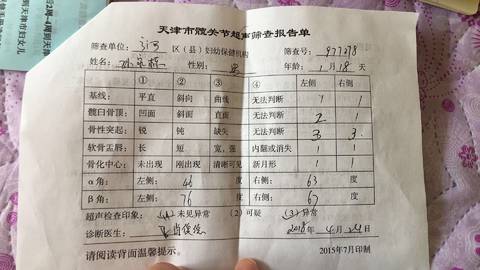 天津市髋关节超声筛查报告单
筛查单位: 区（县）妇幼保健机构 筛查号: 977278
姓名: 性别: 男 年龄: 1月18天
① ② ③ ④ 左侧 右侧
基线: 平直 斜向 曲线 无法判断 1 1
髋臼骨顶: 凹面 斜面 直面 无法判断 2 1
骨性突起: 锐 钝 缺失 无法判断 3 3
软骨盂唇: 长 短 宽,强 内翻或消失 1 1
骨化中心: 未出现 刚出现 清晰可见 新月形 1 1
α角: 左侧: 46 度 右侧: 63 度
β角: 左侧: 76 度 右侧: 67 度
超声检查印象: (1)未见异常 (2)可疑 (3)异常
诊断医生: 2018年4月24日
请阅读背面温馨提示。 2015年7月印制